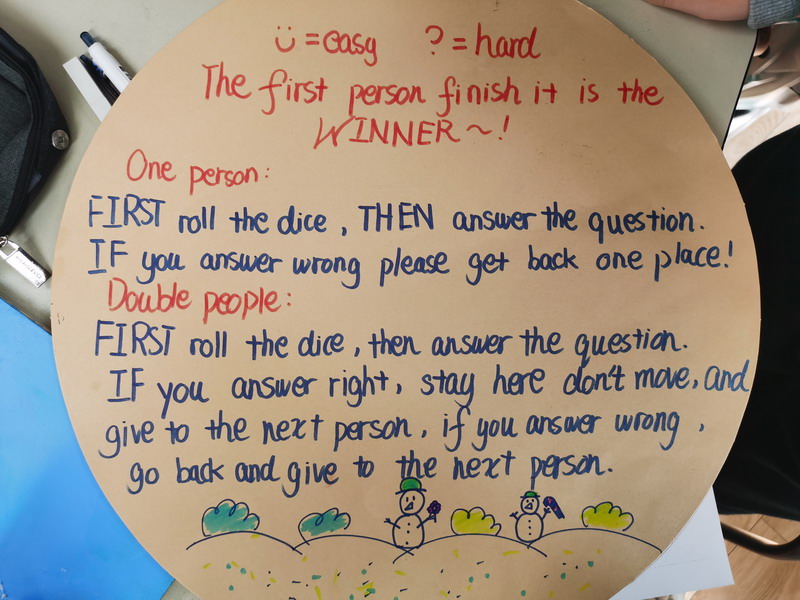 ü = easy ? = hard
The first person finish it is the
WINNER ~ !
One person:
FIRST roll the dice, THEN answer the question.
IF you answer wrong please get back one place!
Double people:
FIRST roll the dice, then answer the question.
IF you answer right, stay here don't move, and
give to the next person, if you answer wrong,
go back and give to the next person.